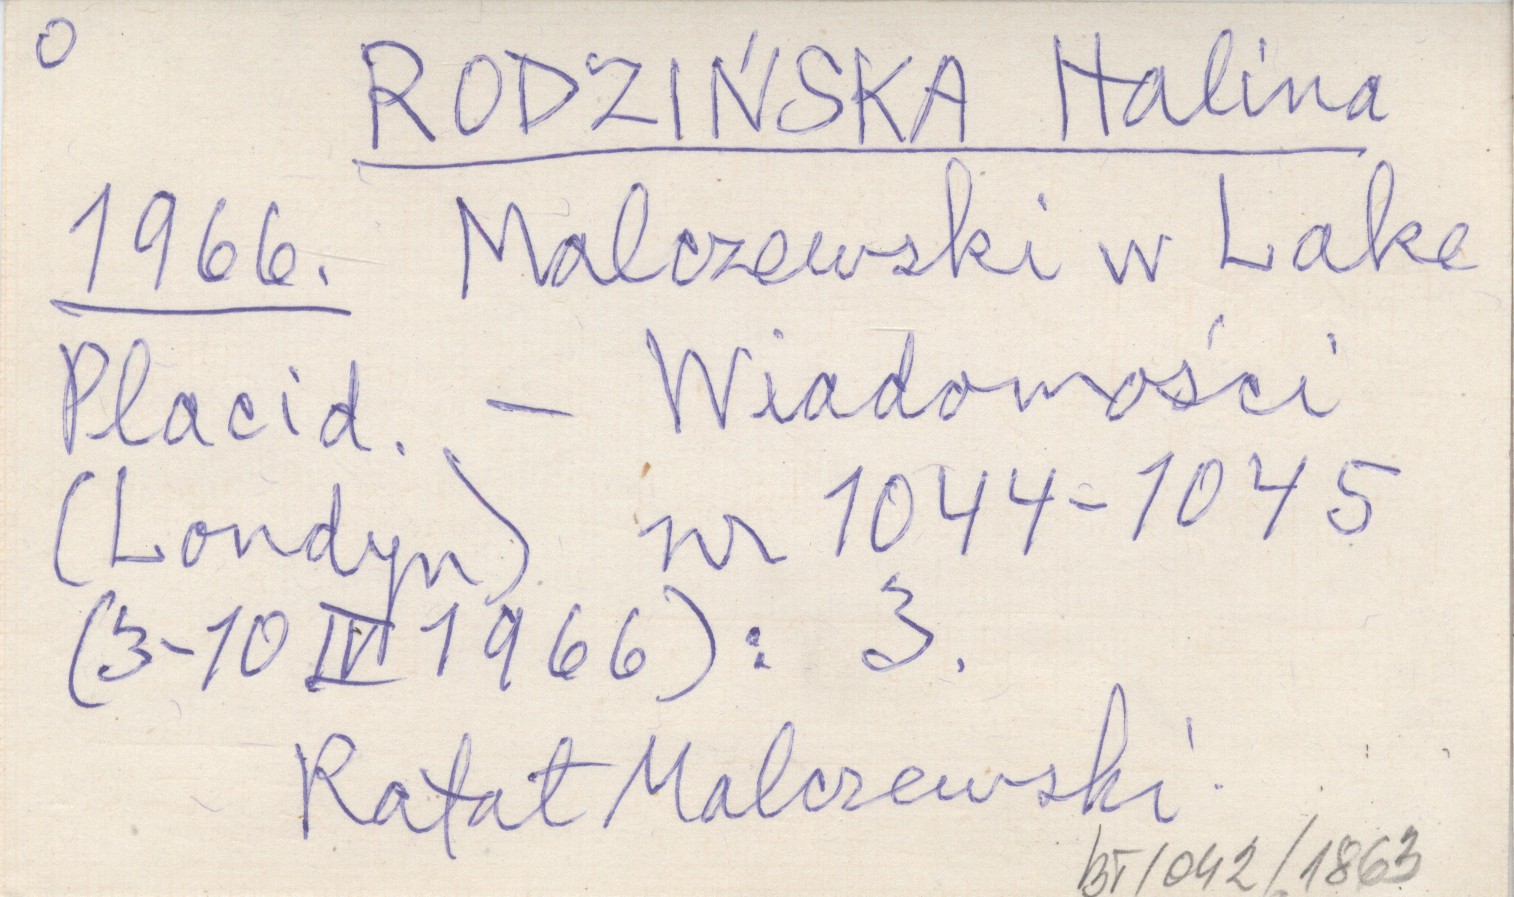 O
RODZIŃSKA Halina
1966. Malczewski w Lake
Placid. - Wiadomości
(Londyn) nr 1044-1045
(3-10 IV 1966): 3.
Rafał Malczewski.
BT/042/1863